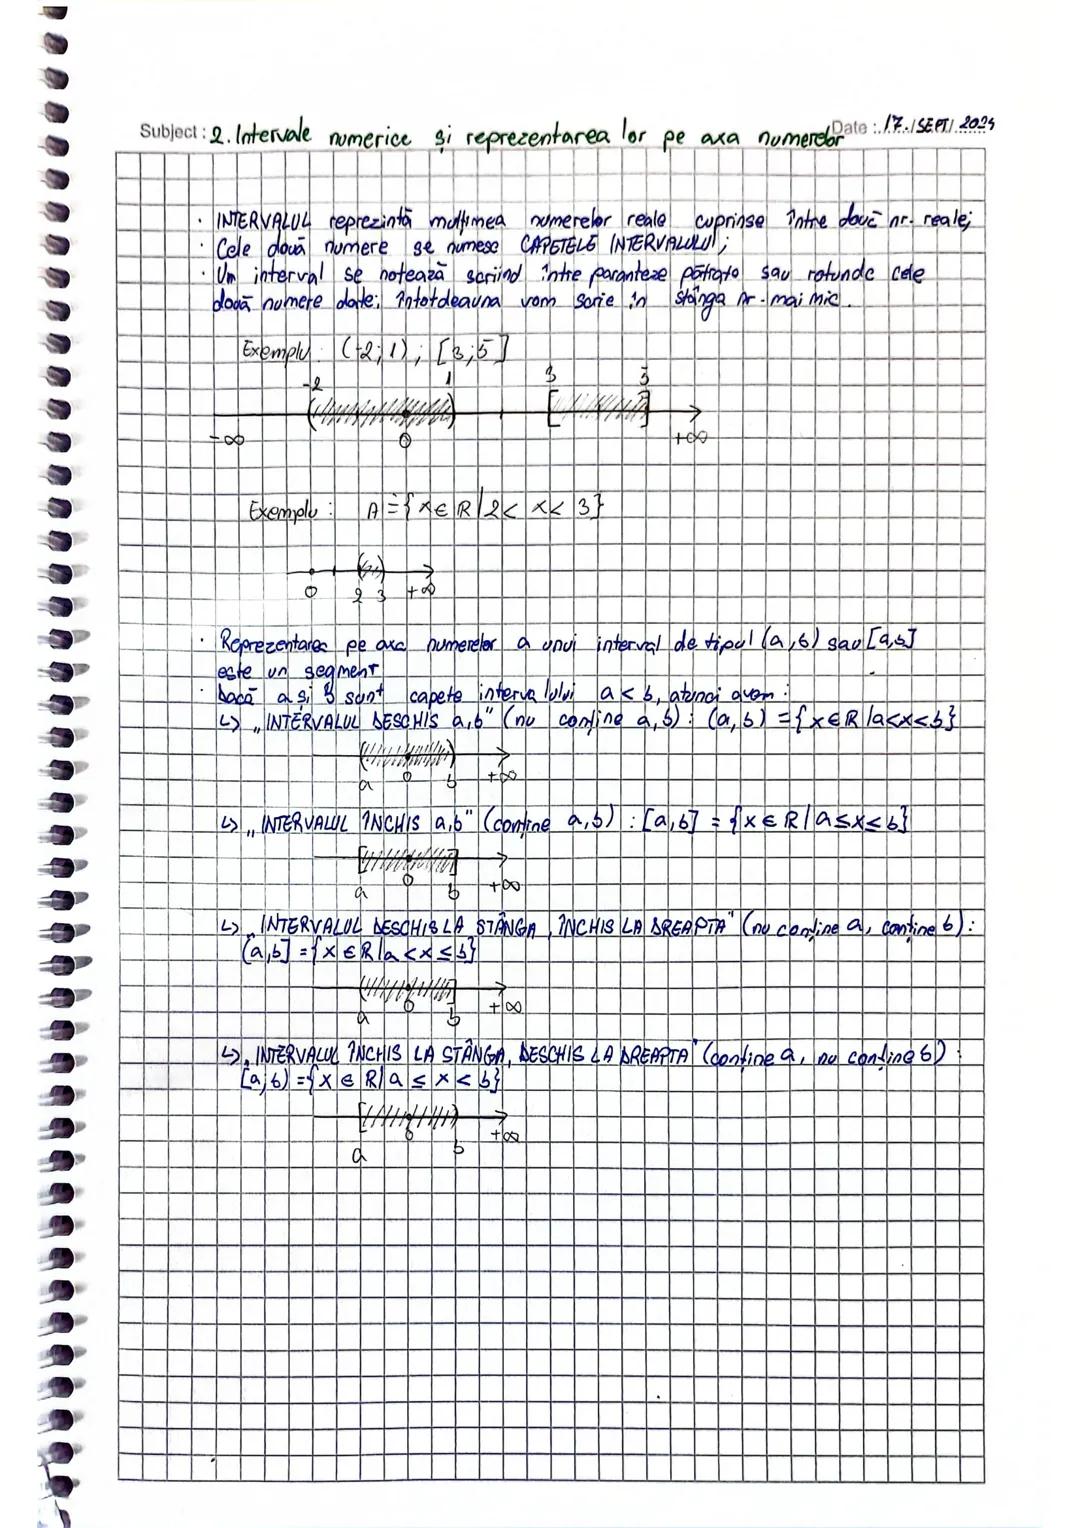 Subject : 2. Intervale numerice și reprezentarea lor pe axa numerelor Date : 17. / SEPT / 2024
· INTERVALUL reprezintă mulțimea numerelor reale cuprinse între două nr. reale;
· Cele două numere se numesc CAPETELE INTERVALULUI;
· Un interval se notează scriind între paranteze pătrate sau rotunde cele
două numere date; întotdeauna vom scrie în stânga nr. mai mic.
Exemplu : (-2; 1); [3;5]
-2 1 3 5
-∞ 0 +∞
Exemplu : A = {x∈ℝ | 2< x< 3}
0 2 3 +∞
· Reprezentarea pe axa numerelor a unui interval de tipul (a,b) sau [a,b]
este un segment
· Dacă a și b sunt capete intervalului a < b, atunci avem :
↳ „INTERVALUL DESCHIS a,b" (nu conține a, b) : (a, b) = {x∈ℝ |a<x<b}
a 0 b +∞
↳ „INTERVALUL ÎNCHIS a,b" (conține a,b) : [a,b] = {x∈ℝ | a≤x≤b}
a 0 b +∞
↳ „INTERVALUL DESCHIS LA STÂNGA, ÎNCHIS LA DREAPTA" (nu conține a, conține b) :
(a,b] = {x∈ℝ|a<x≤b}
a 0 b +∞
↳ „INTERVALUL ÎNCHIS LA STÂNGA, DESCHIS LA DREAPTA" (conține a, nu conține b) :
[a;b) = {x∈ℝ| a ≤ x < b}
a 0 b +∞